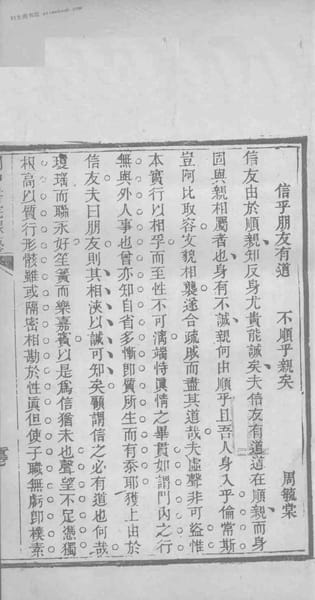 信乎朋友有道 不順乎親矣 周毓棠
信友由於順親知反身尤貴能誠矣夫信友有道這在順親而身
固與親相屬者也身有不誠親何由順乎且吾人身入乎倫常斯
豈阿比取容文貌相襲遂合疏戚而盡其道哉夫虛聲非可盜惟
本實行以相孚而至性不可漓端恃眞情之畢貫如謂門內之行
無與外人事也曾亦知自省多慚即質所生而有忝耶獲上由於
信友夫曰朋友則其相浹以誠可知矣顧謂信之必有道也何哉
瓊瑤而聯永好笙簧而樂嘉賓以是爲信猶未也聲望不足憑獨
根高以質行形骸雖或隔密相勘於性眞但使子職無虧即樸素